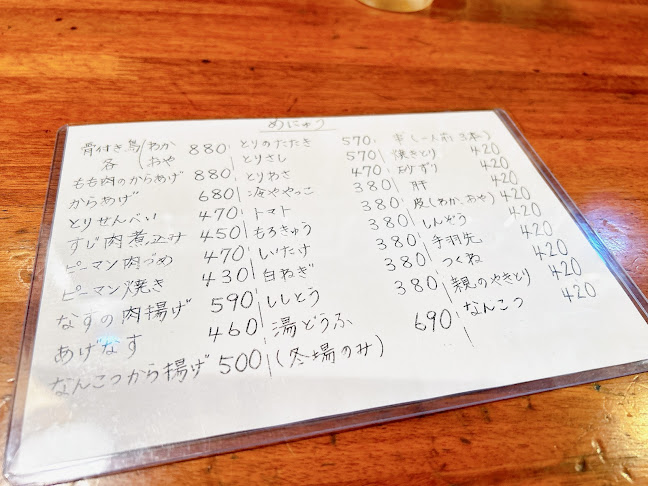 めにゅう
骨付き鳥(わか
各(おや 880
もも肉のからあげ 880
からあげ 680
とりせんべい 470
すじ肉煮込み 450
ピーマン肉づめ 470
ピーマン焼き 430
なすの肉揚げ 590
あげなす 460
なんこつから揚げ 500
とりのたたき 570
とりさし 570
とりわさ 470
冷ややっこ 380
トマト 380
もろきゅう 380
しいたけ 380
白ねぎ 380
ししとう 380
湯どうふ 690
(冬場のみ)
串(一人前3本)
焼きとり 420
砂ずり 420
肝 420
皮(わか、おや) 420
しんぞう 420
手羽先 420
つくね 420
親のやきとり 420
なんこつ 420